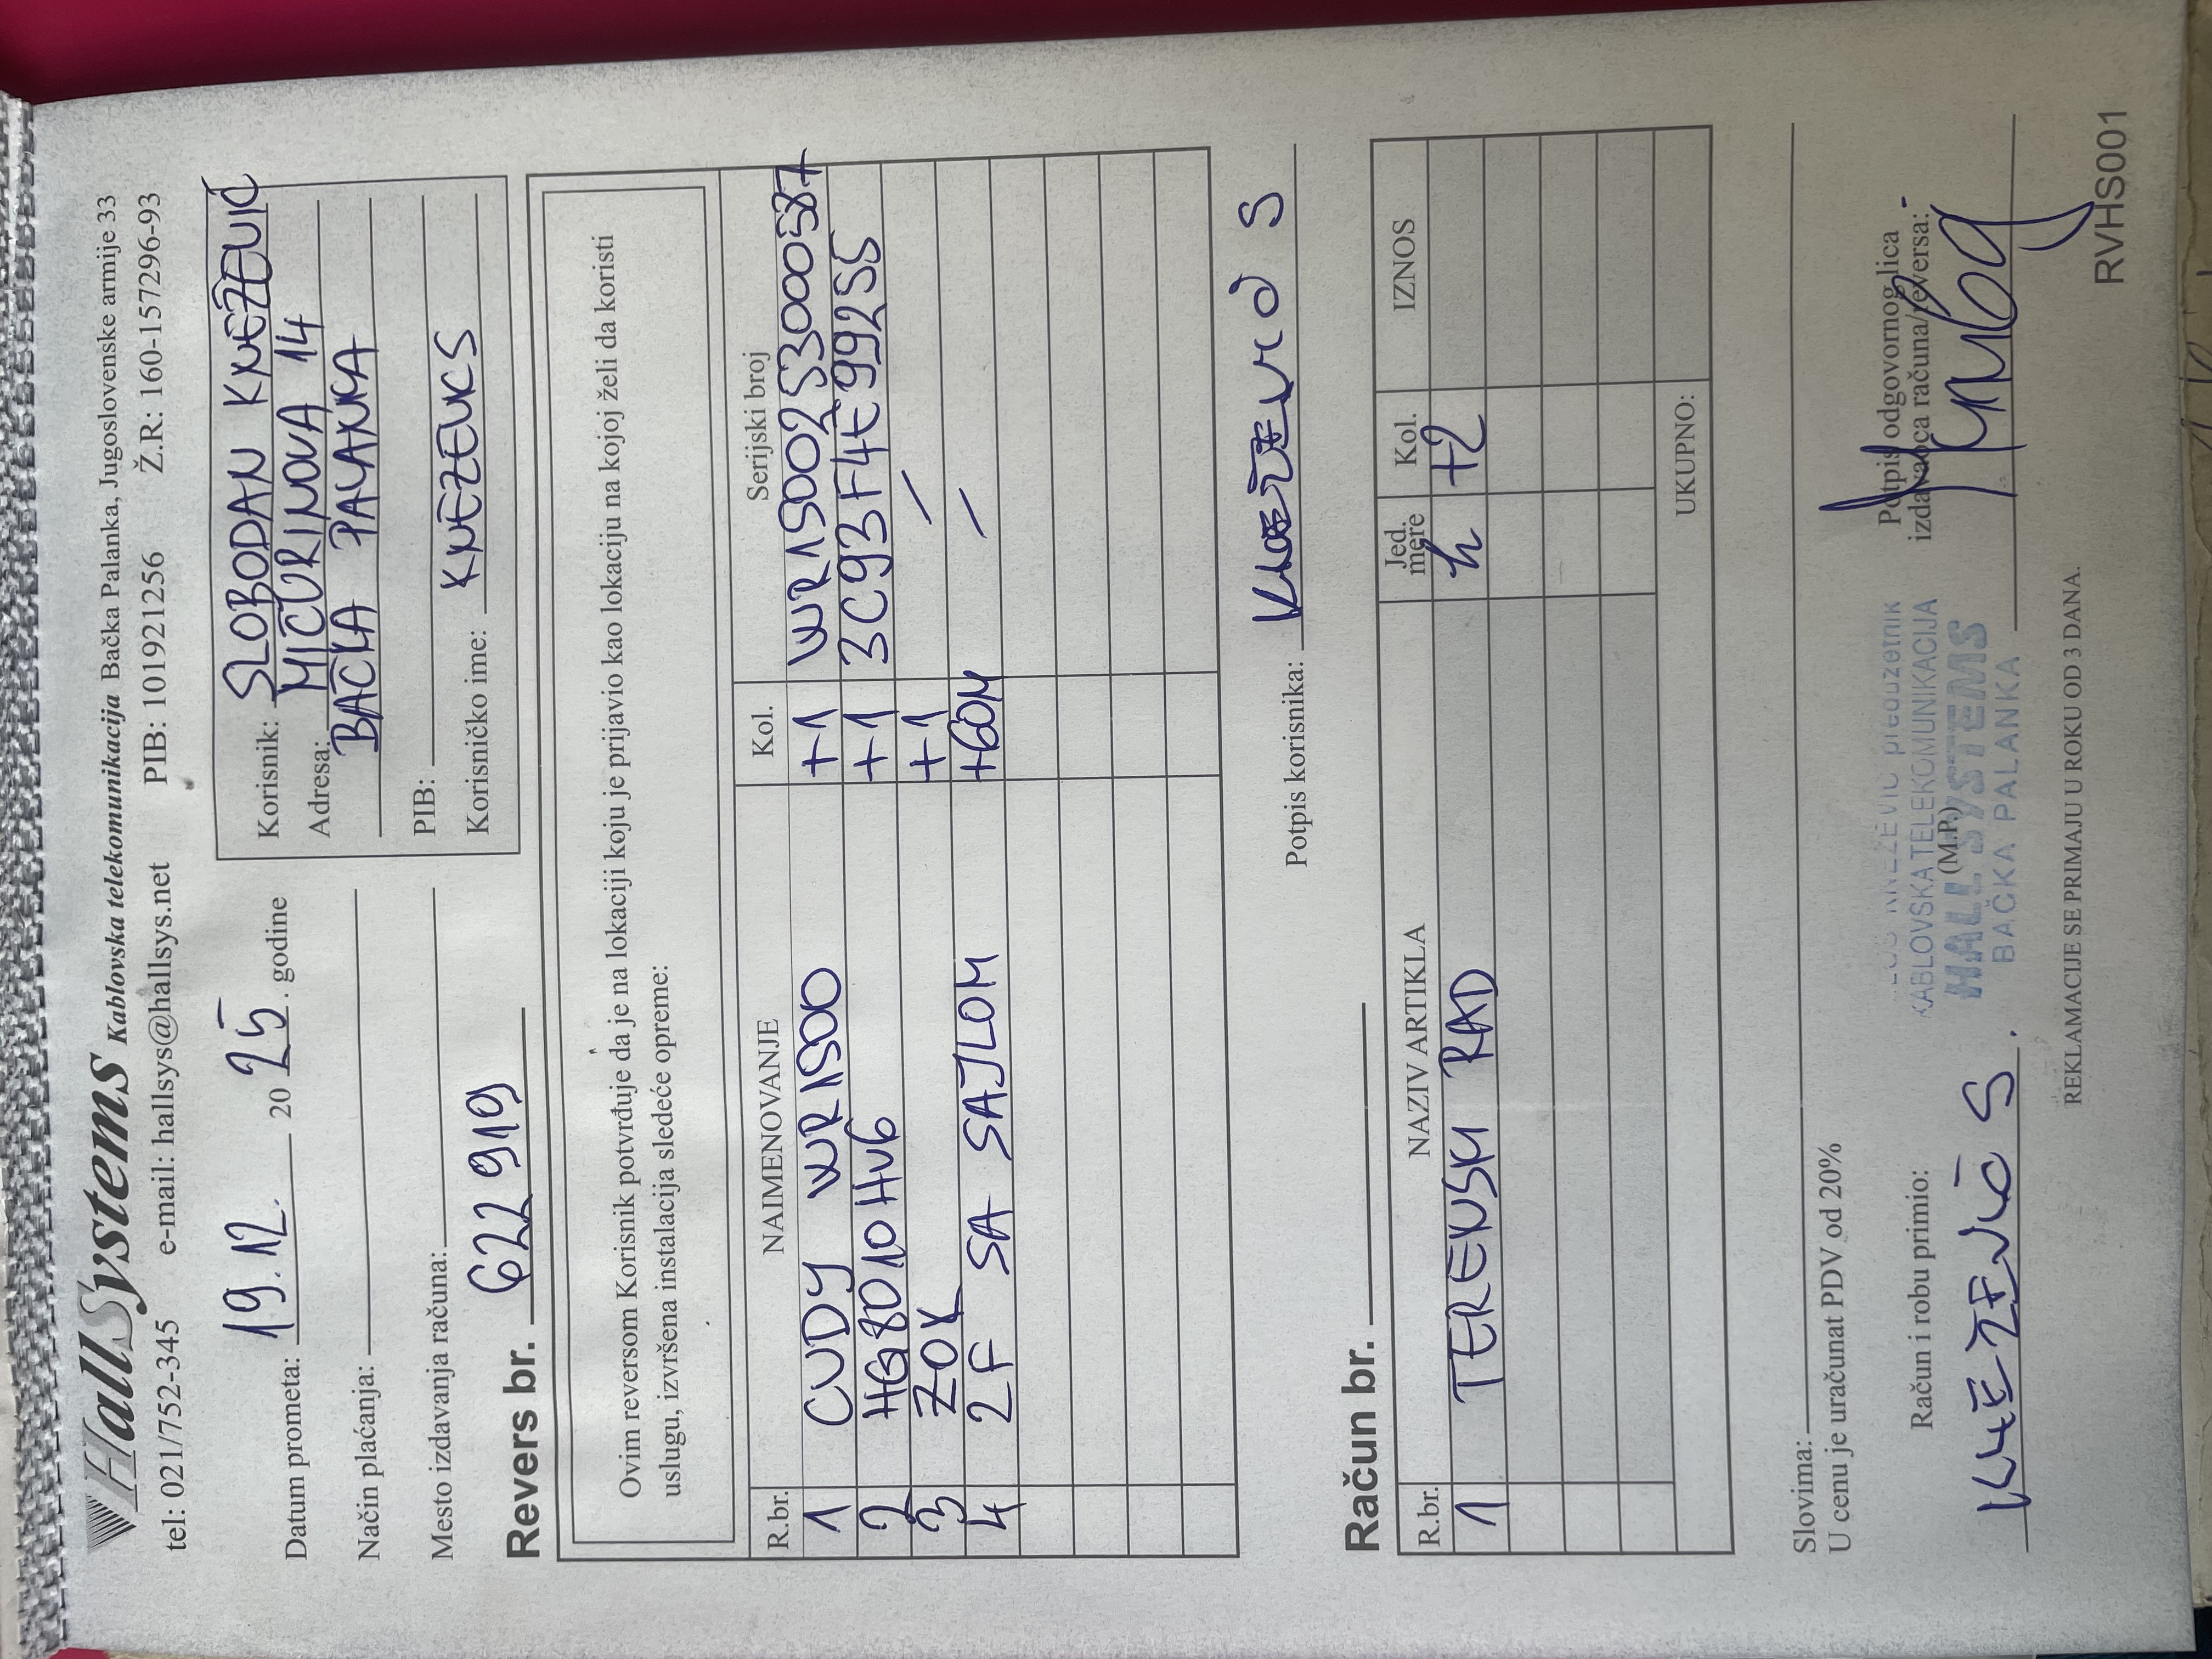 HallSystems Kablovska telekomunikacija Bačka Palanka, Jugoslovenske armije 33
tel: 021/752-345 e-mail: hallsys@hallsys.net PIB: 101921256 Ž.R: 160-157296-93
Datum prometa: 19.12. 2025. godine
Način plaćanja:
Mesto izdavanja računa:
Korisnik: SLOBODAN KNEŽEVIĆ
Adresa: MIČURINOVA 14
BAČKA PALANKA
PIB:
Korisničko ime: KNEZEVICS
Revers br. 622 919
Ovim reversom Korisnik potvrđuje da je na lokaciji koju je prijavio kao lokaciju na kojoj želi da koristi
uslugu, izvršena instalacija sledeće opreme:
R.br. NAIMENOVANJE Kol. Serijski broj
1 CUDY WR1500 +1 WR1500253000587
2 HG8010Hv6 +1 3C93F4E99255
3 ZOK +1 /
4 2F SA SAJLOM +60M /
Potpis korisnika: KNEŽEVIĆ S
Račun br.
R.br. NAZIV ARTIKLA Jed. mere Kol. IZNOS
1 TERENSKI RAD h +2
UKUPNO:
Slovima:
U cenu je uračunat PDV od 20%
Račun i robu primio:
KNEŽEVIĆ S.
KNEŽEVIĆ preduzetnik
KABLOVSKA TELEKOMUNIKACIJA
(M.P.)
HALL SYSTEMS
BAČKA PALANKA
Potpis odgovornog lica
izdavaoca računa/reversa:
REKLAMACIJE SE PRIMAJU U ROKU OD 3 DANA.
RVHS001